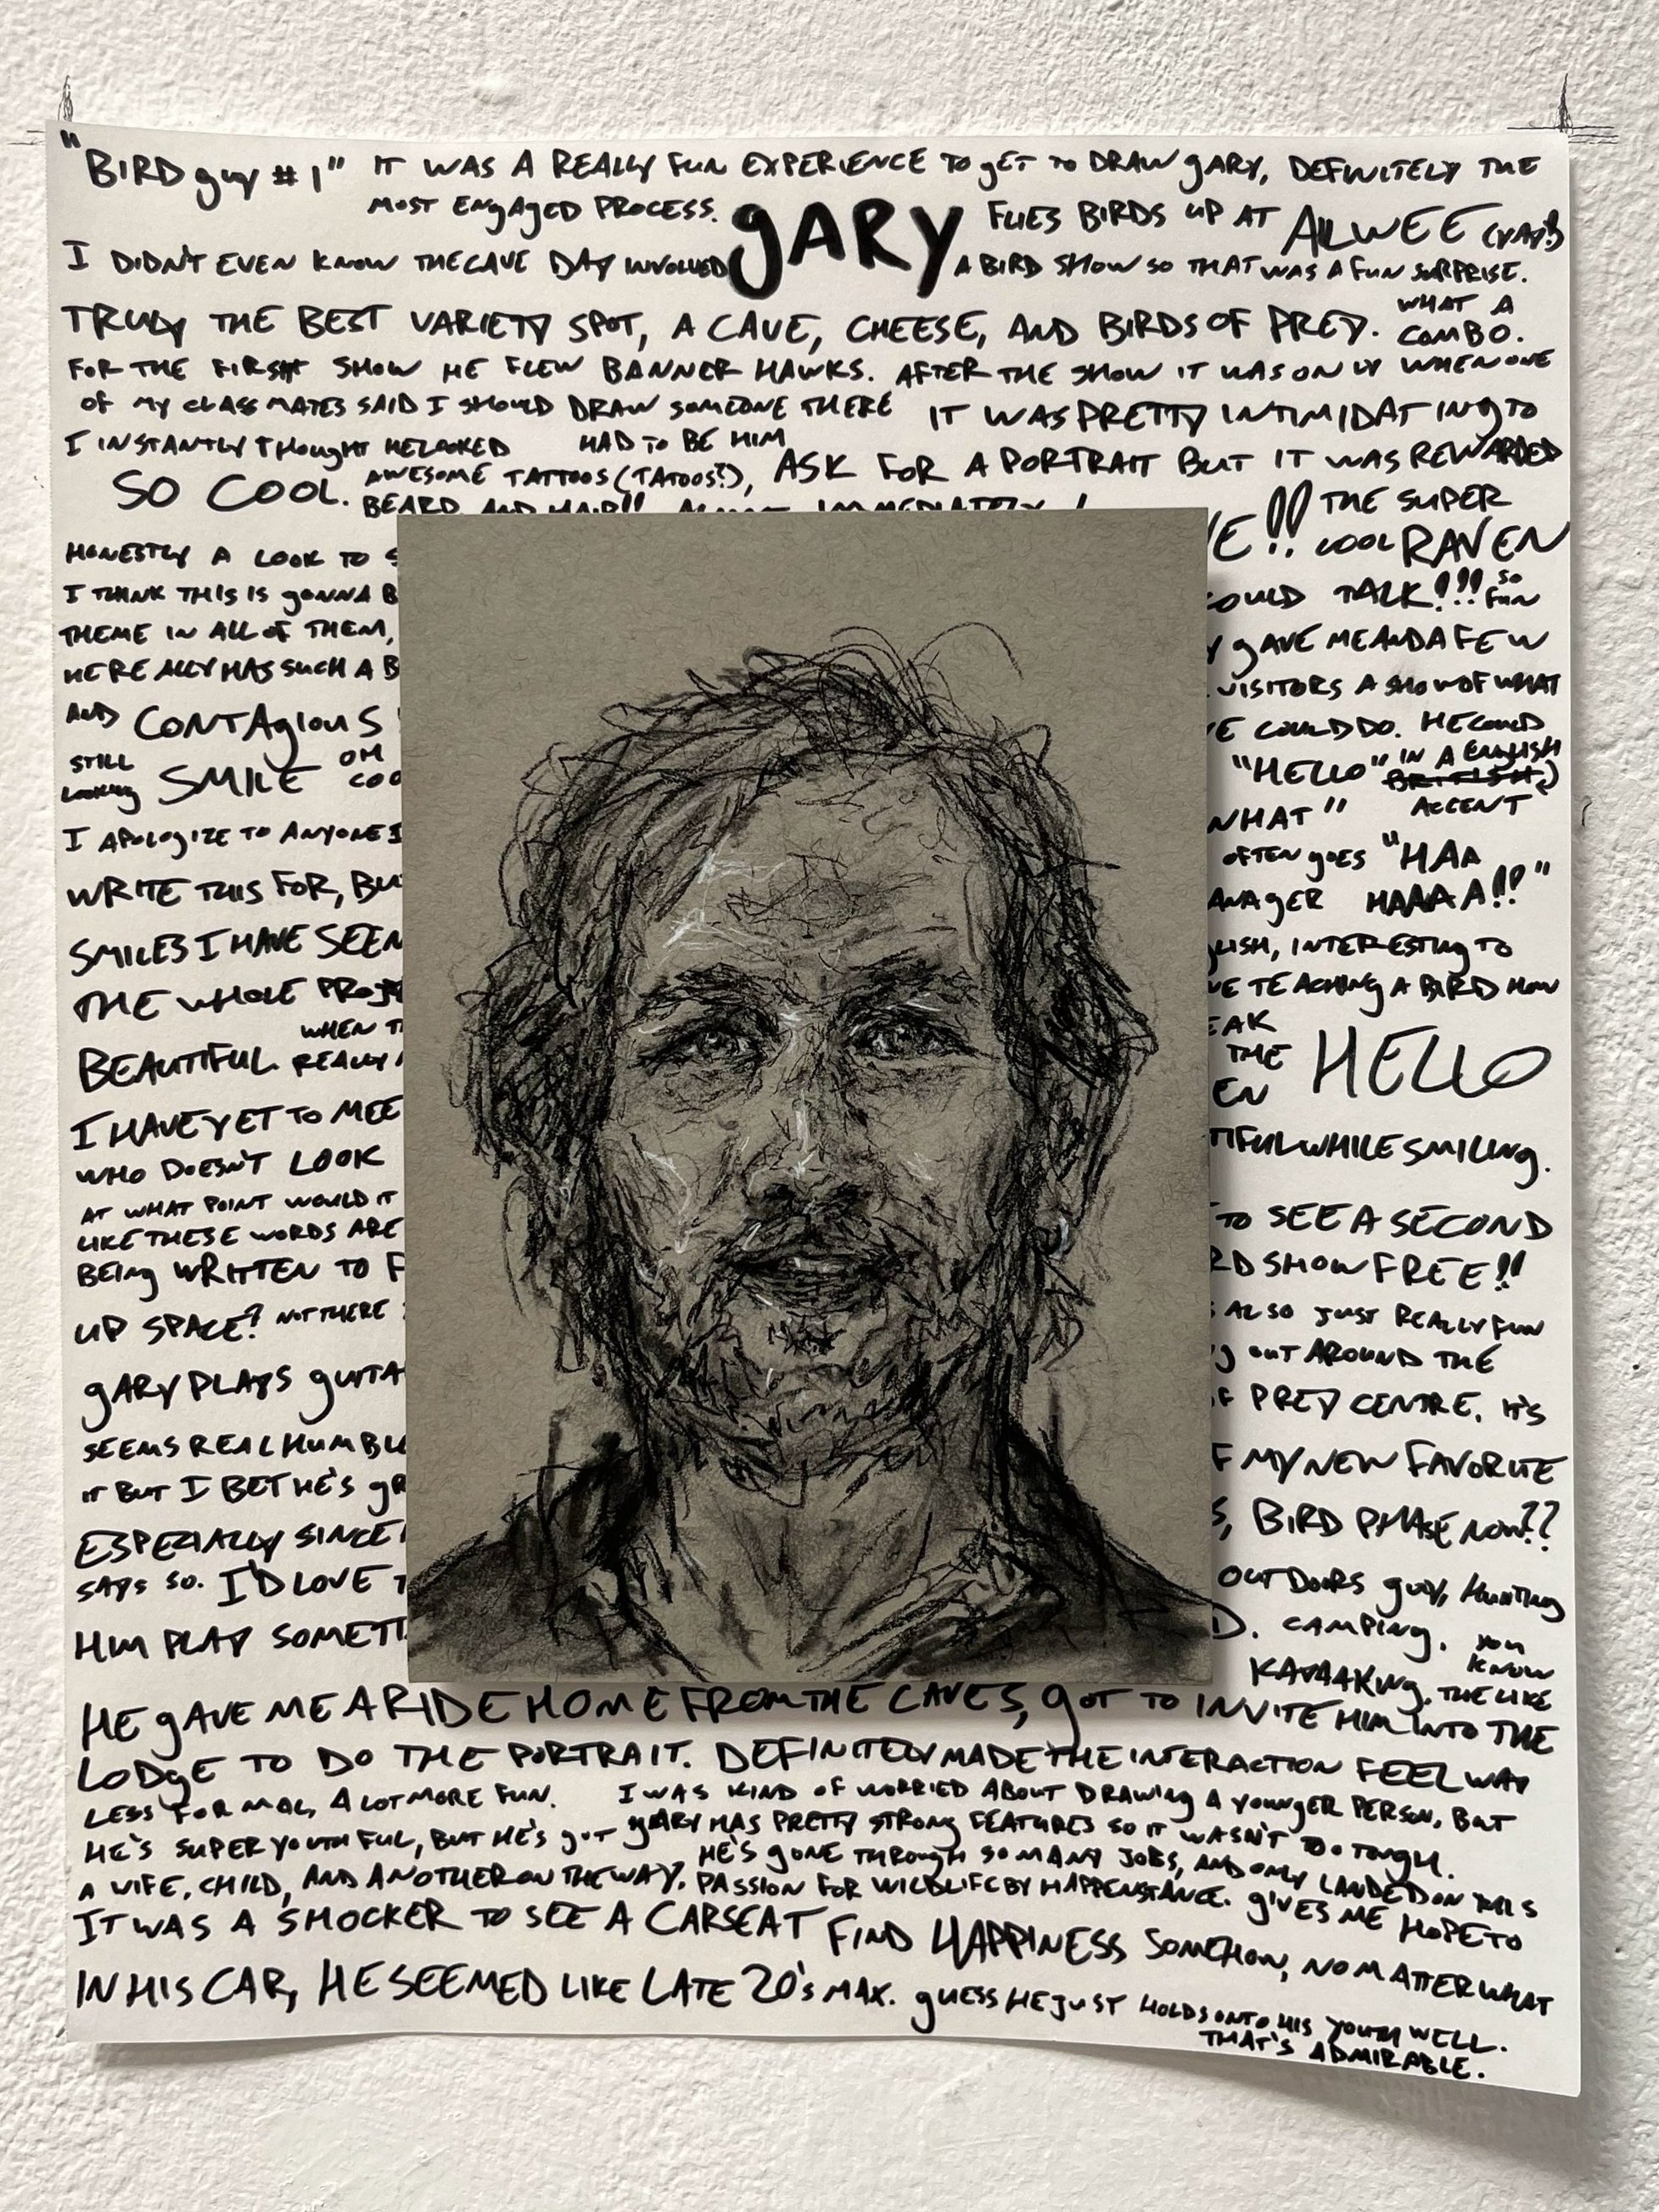 "BIRD guy #1" IT WAS A REALLY FUN EXPERIENCE TO gET TO DRAW gARY, DEFINITELY THE
MOST ENgAgED PROCESS. gARY FLIES BIRDS UP AT AILWEE (YAY!)
I DIDN'T EVEN KNOW THE CAVE DAY INVOLVED A BIRD SHOW SO THAT WAS A FUN SURPRISE.
TRULY THE BEST VARIETY SPOT, A CAVE, CHEESE, AND BIRDS OF PREY. WHAT A COMBO.
FOR THE FIRST SHOW HE FLEW BANNER HAWKS. AFTER THE SHOW IT WAS ONLY WHEN ONE
OF MY CLASSMATES SAID I SHOULD DRAW SOMEONE THERE IT WAS PRETTY INTIMIDATINg TO
I INSTANTLY THOUgHT HE LOOKED HAD TO BE HIM
SO COOL. AWESOME TATTOOS (TATOOS?), ASK FOR A PORTRAIT BUT IT WAS REWARDED
BEARD AND HAIR!! ALMOST IMMEDIATELY!
E!! THE SUPER
COOL RAVEN
HONESTLY A LOOK TO S
I THINK THIS IS gONNA B
OULD TALK!!! SO FUN
THEME IN ALL OF THEM,
Y gAVE ME AND A FEW
HE REALLY HAS SUCH A B
VISITORS A SHOW OF WHAT
AND CONTAgIOUS
E COULD DO. HE COULD
STILL LOOKINg SMILE OH COO
"HELLO" IN A ENgLISH BRITISH) ACCENT
WHAT"
I APOLOgIZE TO ANYONE I
OFTEN gOES "HAA
WRITE THIS FOR, BU
ANAgER HAAAA!!"
SMILES I HAVE SEEN
LISH, INTERESTINg TO
THE WHOLE PROJE
VE TEACHINg A BIRD HOW
WHEN T
EAK
BEAUTIFUL. REALLY
THE
EN HELLO
I HAVE YET TO MEE
TIFUL WHILE SMILINg.
WHO DOESN'T LOOK
AT WHAT POINT WOULD IT
TO SEE A SECOND
LIKE THESE WORDS ARE
BEINg WRITTEN TO F
RD SHOW FREE!!
UP SPACE? NOT THERE
ALSO JUST REALLY FUN
g OUT AROUND THE
gARY PLAYS gUITA
F PREY CENTRE. IT'S
SEEMS REAL HUMBL
F MY NEW FAVORITE
IT BUT I BET HE'S gR
S, BIRD PHASE NOW??
ESPECIALLY SINCE
SAYS SO. I'D LOVE T
OUTDOORS gUY, HUNTINg
HIM PLAY SOMETI
D. CAMPINg. YOU KNOW
KAYAAKINg. THE LIKE
HE gAVE ME A RIDE HOME FROM THE CAVES, gOT TO INVITE HIM INTO THE
LODgE TO DO THE PORTRAIT. DEFINITELY MADE THE INTERACTION FEEL WAY
LESS FORMAL, A LOT MORE FUN. I WAS KIND OF WORRIED ABOUT DRAWINg A YOUNgER PERSON, BUT
gARY HAS PRETTY STRONg FEATURES SO IT WASN'T TOO TOUgH.
HE'S SUPER YOUTHFUL, BUT HE'S gOT
A WIFE, CHILD, AND ANOTHER ON THE WAY.
HE'S gONE THROUgH SO MANY JOBS, AND ONLY LANDED ON THIS
PASSION FOR WILDLIFE BY HAPPENSTANCE. gIVES ME HOPE TO
FIND HAPPINESS SOMEHOW, NO MATTER WHAT
IT WAS A SHOCKER TO SEE A CARSEAT
IN HIS CAR, HE SEEMED LIKE LATE 20's MAX. gUESS HE JUST HOLDS ONTO HIS YOUTH WELL.
THAT'S ADMIRABLE.